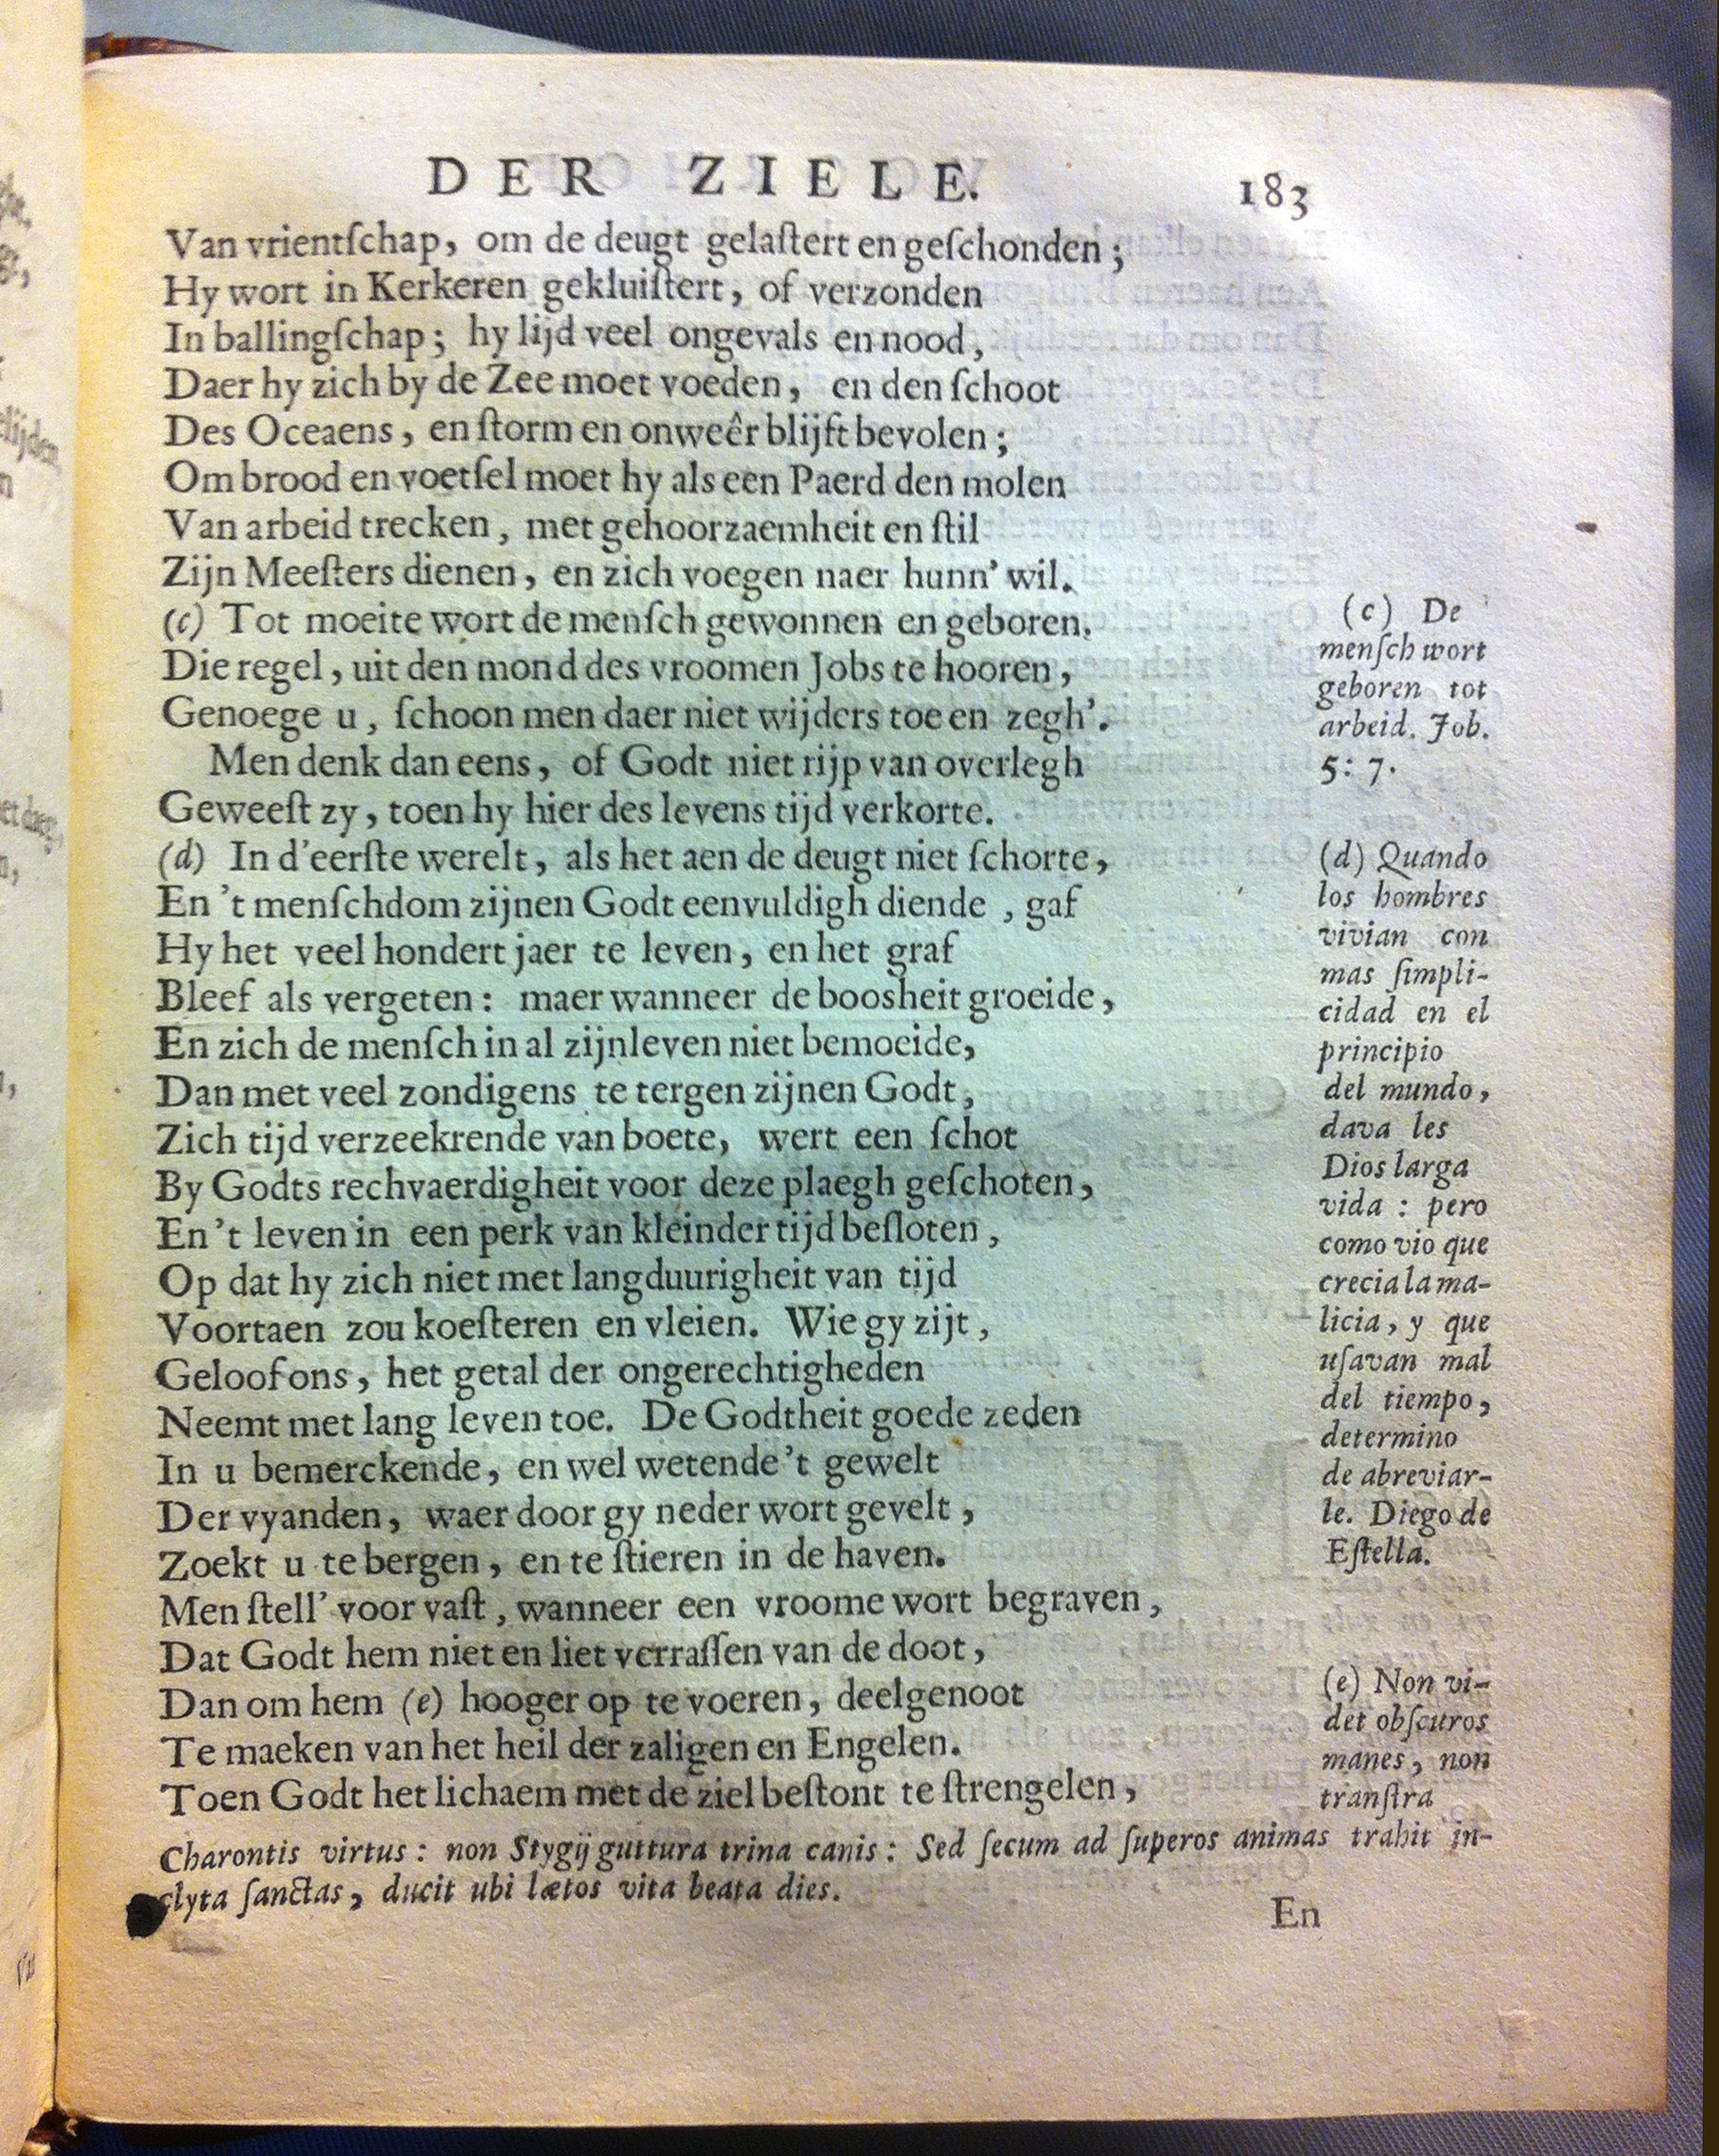 DER ZIELE.
183
Van vrientſchap, om de deugt gelaſtert en geſchonden;
Hy wort in Kerkeren gekluiſtert, of verzonden
In ballingſchap; hy lijd veel ongevals en nood,
Daer hy zich by de Zee moet voeden, en den ſchoot
Des Oceaens, en ſtorm en onweêr blijft bevolen;
Om brood en voetſel moet hy als een Paerd den molen
Van arbeid trecken, met gehoorzaemheit en ſtil
Zijn Meeſters dienen, en zich voegen naer hunn' wil.
(c) Tot moeite wort de menſch gewonnen en geboren.
Die regel, uit den mond des vroomen Jobs te hooren,
Genoege u, ſchoon men daer niet wijders toe en zegh'.
Men denk dan eens, of Godt niet rijp van overlegh
Geweeſt zy, toen hy hier des levens tijd verkorte.
(d) In d'eerſte werelt, als het aen de deugt niet ſchorte,
En 't menſchdom zijnen Godt eenvuldigh diende, gaf
Hy het veel hondert jaer te leven, en het graf
Bleef als vergeten: maer wanneer de boosheit groeide,
En zich de menſch in al zijn leven niet bemoeide,
Dan met veel zondigens te tergen zijnen Godt,
Zich tijd verzeekrende van boete, wert een ſchot
By Godts rechvaerdigheit voor deze plaegh geſchoten,
En 't leven in een perk van kleinder tijd beſloten,
Op dat hy zich niet met langduurigheit van tijd
Voortaen zou koeſteren en vleien. Wie gy zijt,
Geloof ons, het getal der ongerechtigheden
Neemt met lang leven toe. De Godtheit goede zeden
In u bemerckende, en wel wetende 't gewelt
Der vyanden, waer door gy neder wort gevelt,
Zoekt u te bergen, en te ſtieren in de haven.
Men ſtell' voor vaſt, wanneer een vroome wort begraven,
Dat Godt hem niet en liet verraſſen van de doot,
Dan om hem (e) hooger op te voeren, deelgenoot
Te maeken van het heil der zaligen en Engelen.
Toen Godt het lichaem met de ziel beſtont te ſtrengelen,
(c) De
menſch wort
geboren tot
arbeid. Job.
5: 7.
(d) Quando
los hombres
vivian con
mas ſimpli-
cidad en el
principio
del mundo,
dava les
Dios larga
vida: pero
como vio que
crecia la ma-
licia, y que
uſavan mal
del tiempo,
determino
de abreviar-
le. Diego de
Eſtella.
(e) Non vi-
det obſcuros
manes, non
tranſtra
Charontis virtus: non Stygij guttura trina canis: Sed ſecum ad ſuperos animas trahit in-
clyta ſanctas, ducit ubi lætos vita beata dies.
En